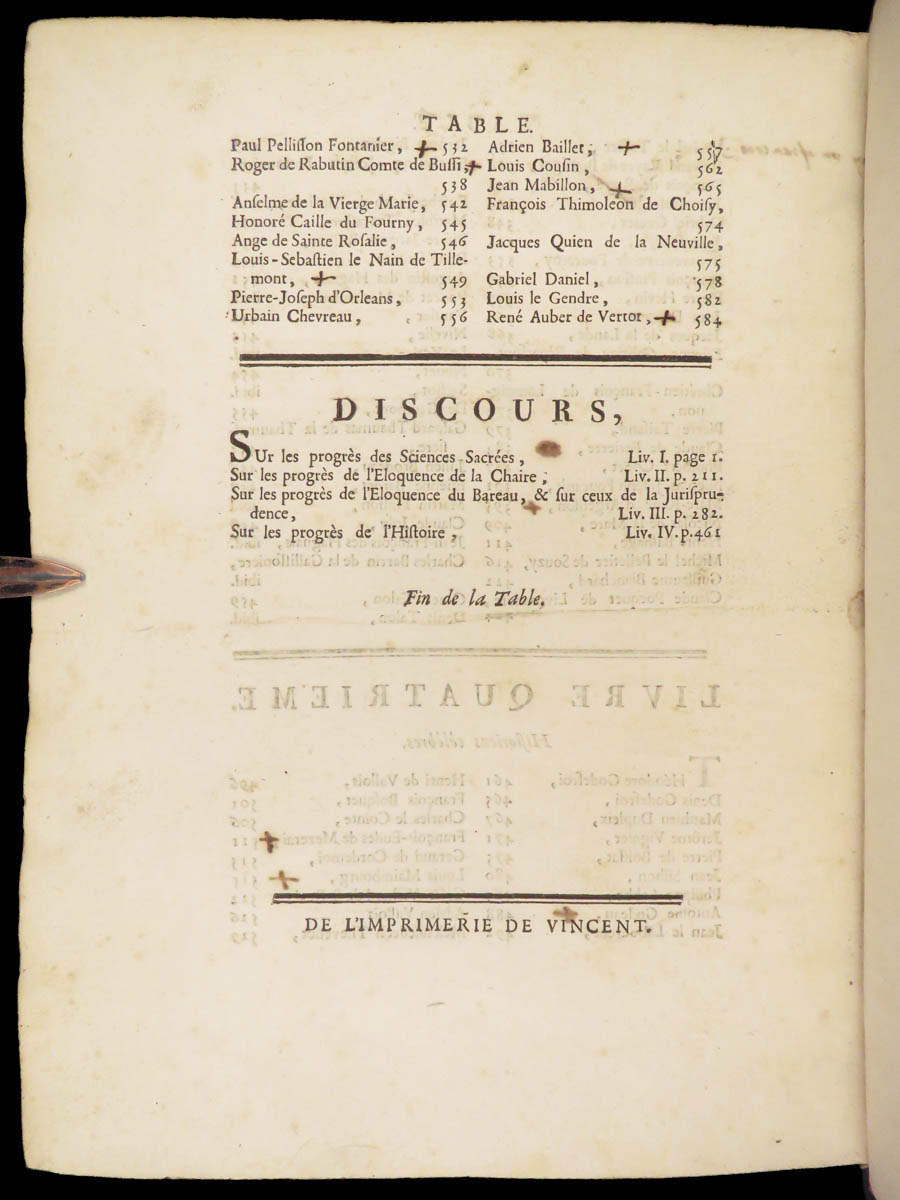 TABLE.
Paul Pellisson Fontanier, 532
Roger de Rabutin Comte de Bussi,
538
Anselme de la Vierge Marie, 542
Honoré Caille du Fourny, 545
Ange de Sainte Rosalie, 546
Louis-Sebastien le Nain de Tille-
mont, 549
Pierre-Joseph d'Orleans, 553
Urbain Chevreau, 556
Adrien Baillet, 557
Louis Cousin, 562
Jean Mabillon, 565
François Thimoleon de Choisy,
574
Jacques Quien de la Neuville,
575
Gabriel Daniel, 578
Louis le Gendre, 582
René Auber de Vertot, 584
DISCOURS,
SUr les progrès des Sciences Sacrées, Liv. I. page 1.
Sur les progrès de l'Eloquence de la Chaire; Liv. II. p. 211.
Sur les progrès de l'Eloquence du Bareau, & sur ceux de la Jurispru-
dence, Liv. III. p. 282.
Sur les progrès de l'Histoire, Liv. IV. p. 461
Fin de la Table.
DE L'IMPRIMERIE DE VINCENT.